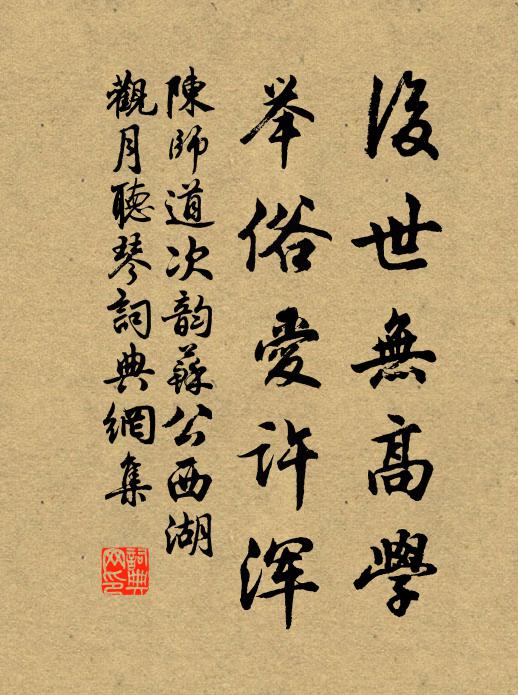 後世無高學
举俗愛許渾
陳師道次韵蘇公西湖
觀月聽琴詞典網集
詞典网印